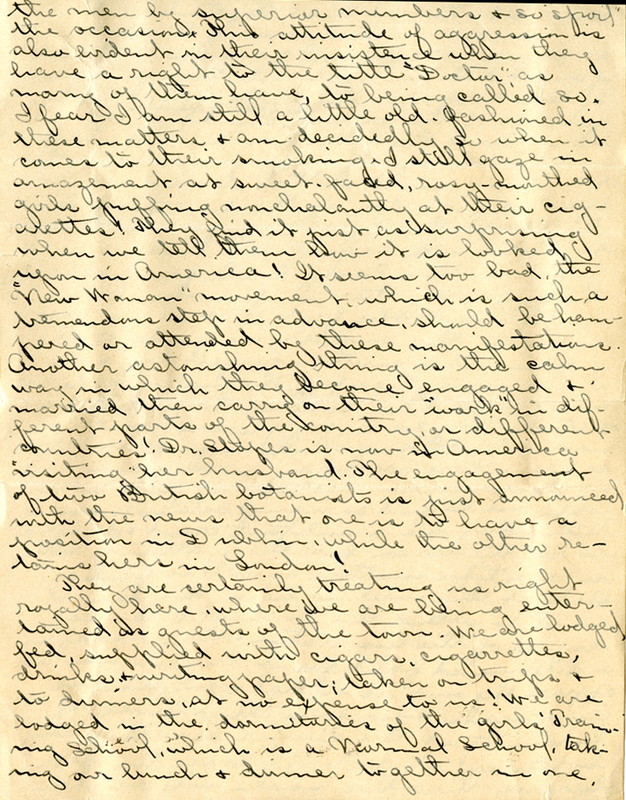 the men by superior numbers & so spoil
the occasion. This attitude of aggression is
also evident in their insistence when they
have a right to the title "Doctor", as
many of them have, to being called so.
I fear I am still a little old-fashioned in
these matters & am decidedly so when it
comes to their smoking. I still gaze in
amazement at sweet-faced, rosy-mouthed
girls puffing nonchalantly at their cig-
arettes! They find it just as surprising
when we tell them how it is looked
upon in America! It seems too bad, the
"New Woman" movement, which is such a
tremendous step in advance, should be ham-
pered or attended by these manifestations.
Another astonishing thing is the calm
way in which they become engaged &
married then carry on their "work" in dif-
ferent parts of the country, or different
countries! Dr. Stopes is now in America
visiting her husband. The engagement
of two British botanists is just announced
with the news that one is to have a
position in Dublin, while the other re-
tains hers in London!
They are certainly treating us right
royally here, where we are being enter-
tained as guests of the town. We are lodged,
fed, supplied with cigars, cigarrettes,
drinks, & writing paper; taken on trips &
to dinners, at no expense to us! We are
lodged in the dormitories of the girls' Train-
ing School, which is a Normal School, tak-
ing our lunch & dinner together in one,